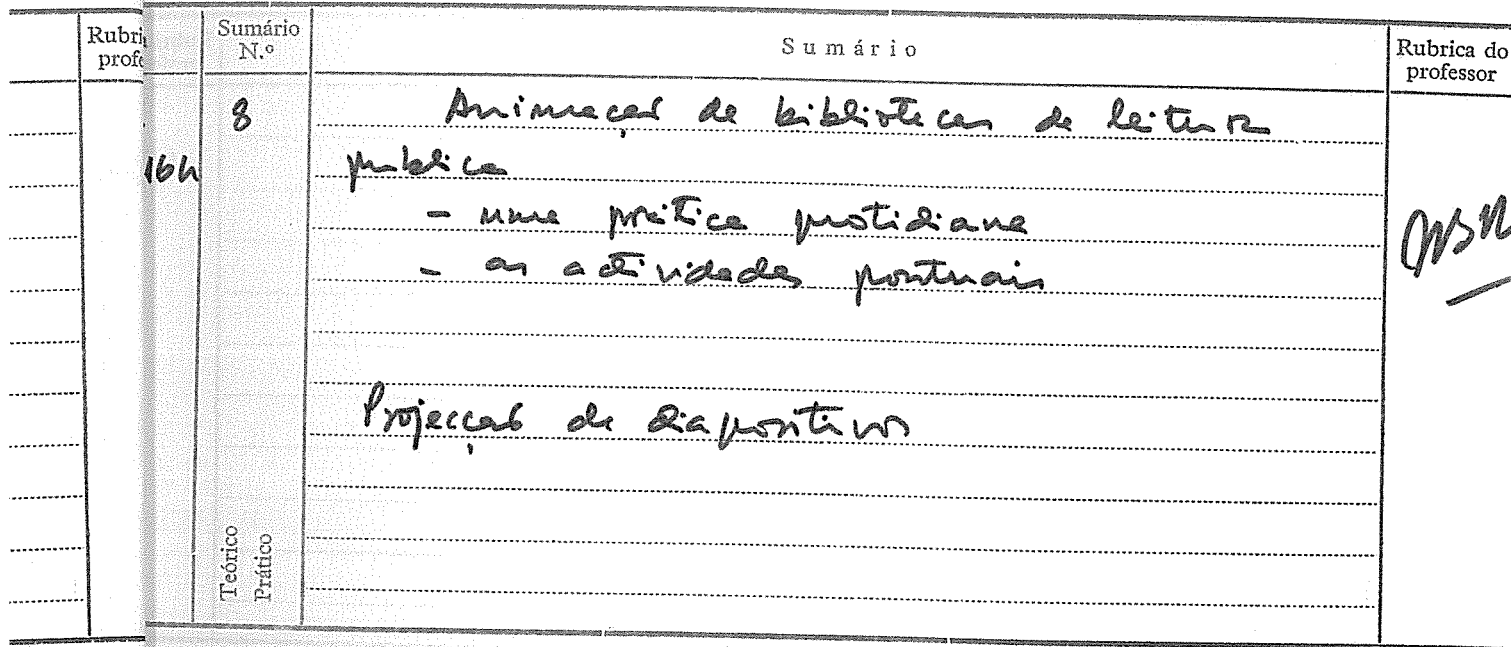 Rubri
profe
Sumário
N.º
Sumário
Rubrica do
professor
8
Animação de bibliotecas de leitura
16h
publica
- uma prática quotidiana
- as actividades pontuais
Projecção de diapositivos
Teórico
Prático